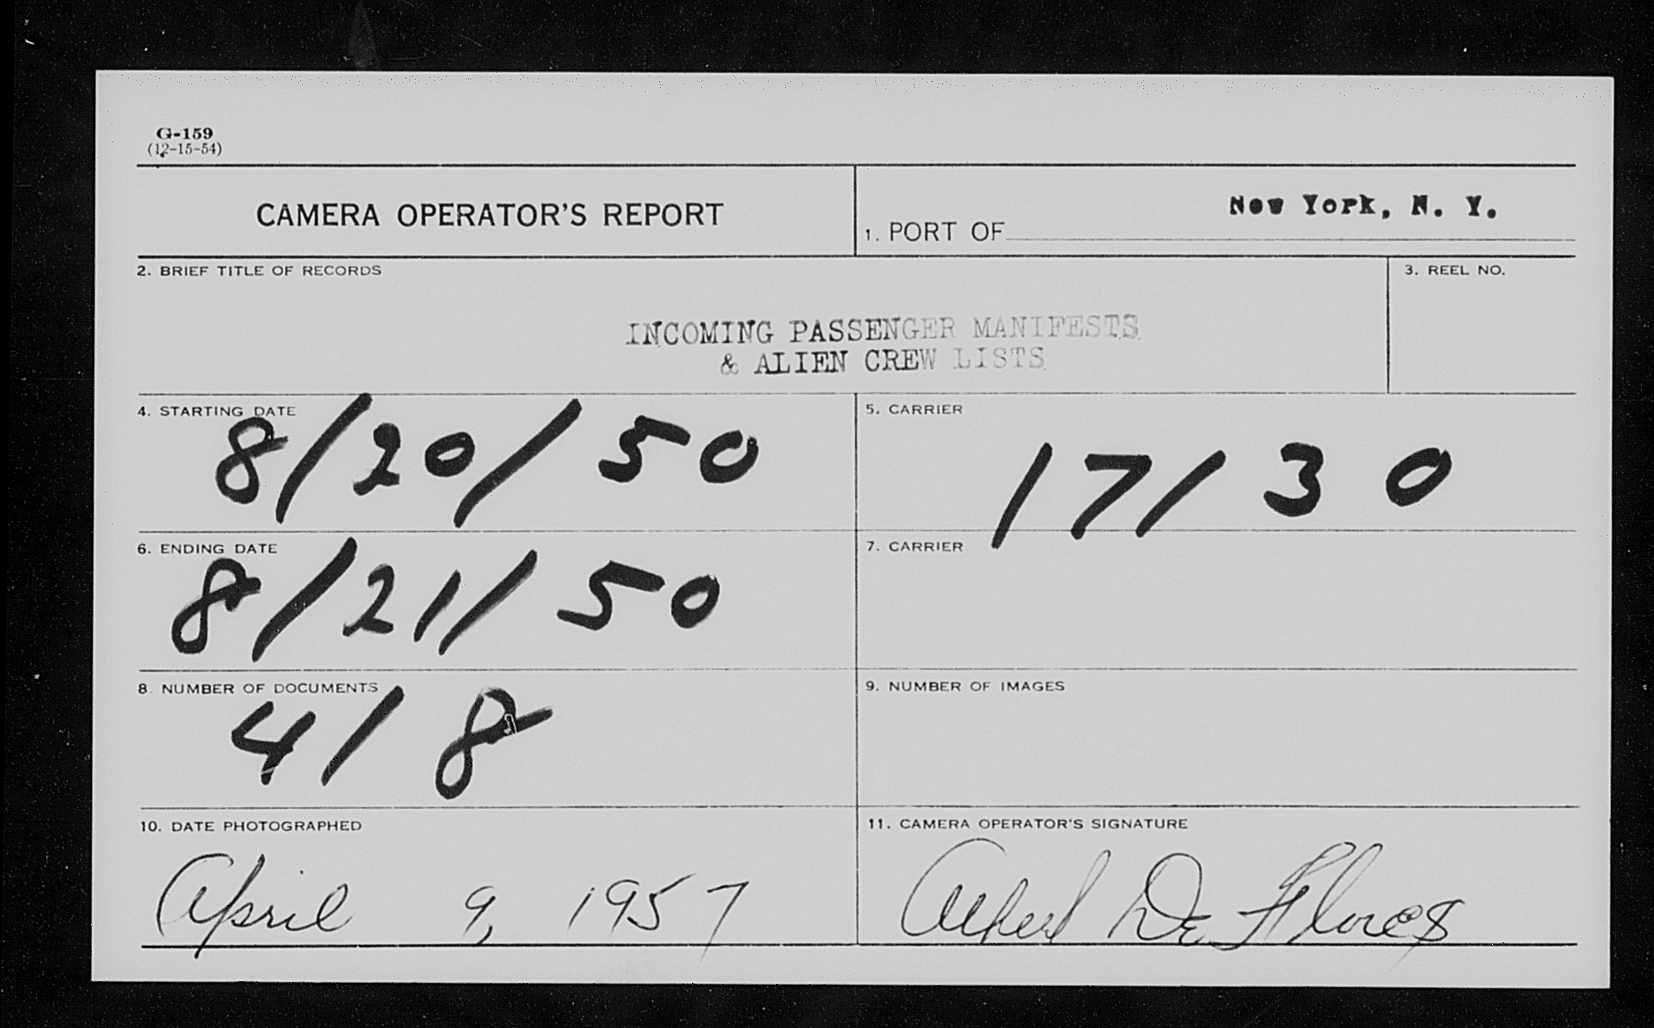 G-159
(12-15-54)
CAMERA OPERATOR'S REPORT
1. PORT OF New York, N. Y.
2. BRIEF TITLE OF RECORDS
3. REEL NO.
INCOMING PASSENGER MANIFESTS
& ALIEN CREW LISTS
4. STARTING DATE
8/20/50
5. CARRIER
17/30
6. ENDING DATE
8/21/50
7. CARRIER
8. NUMBER OF DOCUMENTS
4/8
9. NUMBER OF IMAGES
10. DATE PHOTOGRAPHED
April 9, 1957
11. CAMERA OPERATOR'S SIGNATURE
Alfred De Flores